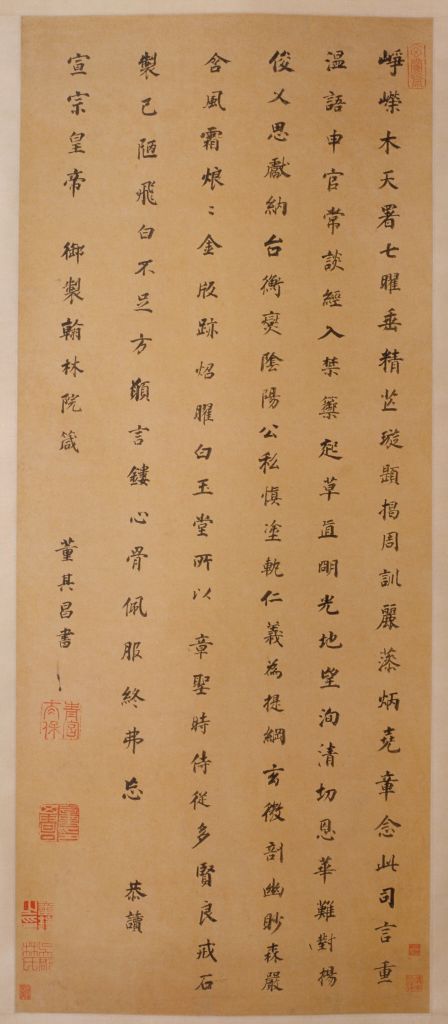 崢嶸木天署七曜垂精芒璇題揭周訓麗藻炳堯章念此司言重
溫語申官常談經入禁籞起草直明光地望洵清切恩華難對揚
俊乂思獻納台衡爕陰陽公私慎塗軌仁義為提綱玄微剖幽眇森嚴
含風霜煌〻金版跡炤曜白玉堂所以章聖時侍從多賢良戒石
製已陋飛白不足方願言鏤心骨佩服終弗忘 恭讀
宣宗皇帝 御製翰林院箴 董其昌書